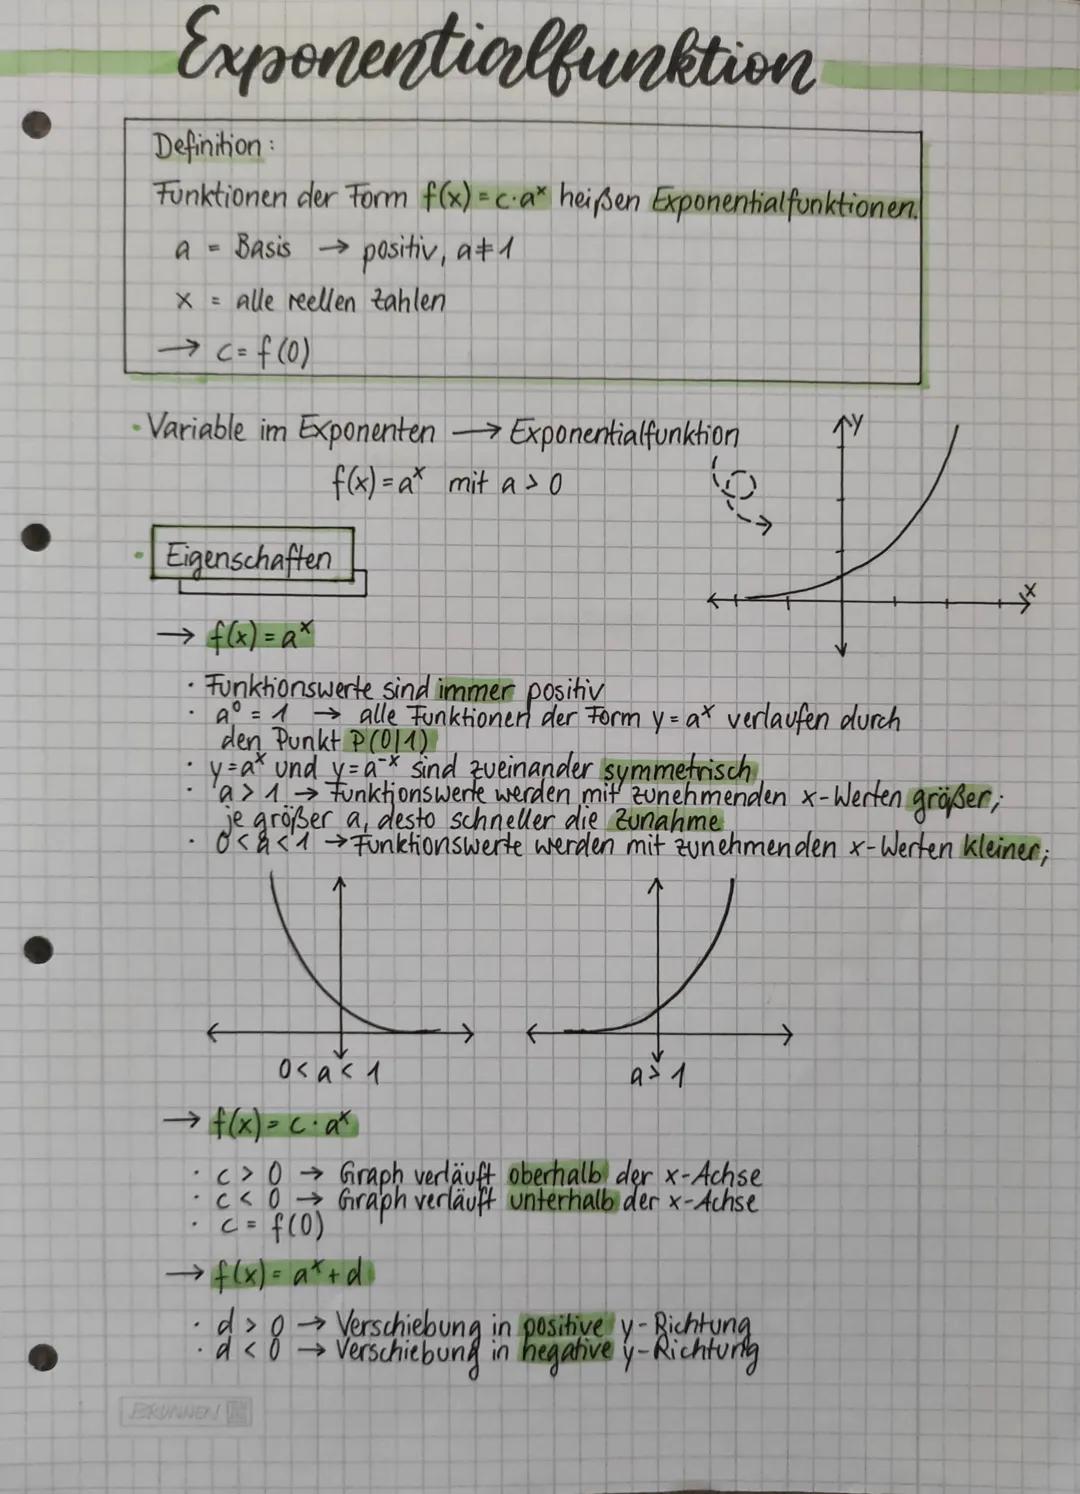 Exponentialfunktion
Definition:
Funktionen der Form f(x) = c·aˣ heißen Exponentialfunktionen.
a = Basis → positiv, a ≠ 1
x = alle reellen Zahlen
→ c = f(0)
· Variable im Exponenten → Exponentialfunktion
f(x) = aˣ mit a > 0
y
x
· Eigenschaften
→ f(x) = aˣ
· Funktionswerte sind immer positiv
· a⁰ = 1 → alle Funktionen der Form y = aˣ verlaufen durch
den Punkt P(0|1)
· y = aˣ und y = a⁻ˣ sind zueinander symmetrisch
· a > 1 → Funktionswerte werden mit zunehmenden x-Werten größer;
je größer a, desto schneller die Zunahme
· 0 < a < 1 → Funktionswerte werden mit zunehmenden x-Werten kleiner;
0 < a < 1
a > 1
→ f(x) = c · aˣ
· c > 0 → Graph verläuft oberhalb der x-Achse
· c < 0 → Graph verläuft unterhalb der x-Achse
· c = f(0)
→ f(x) = aˣ + d
· d > 0 → Verschiebung in positive y-Richtung
· d < 0 → Verschiebung in negative y-Richtung
BRUNNEN